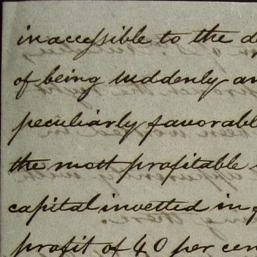 inaccessible to the d
of being suddenly an
peculiarly favorable
the most profitable
capital invested in g
profit of 40 per cen